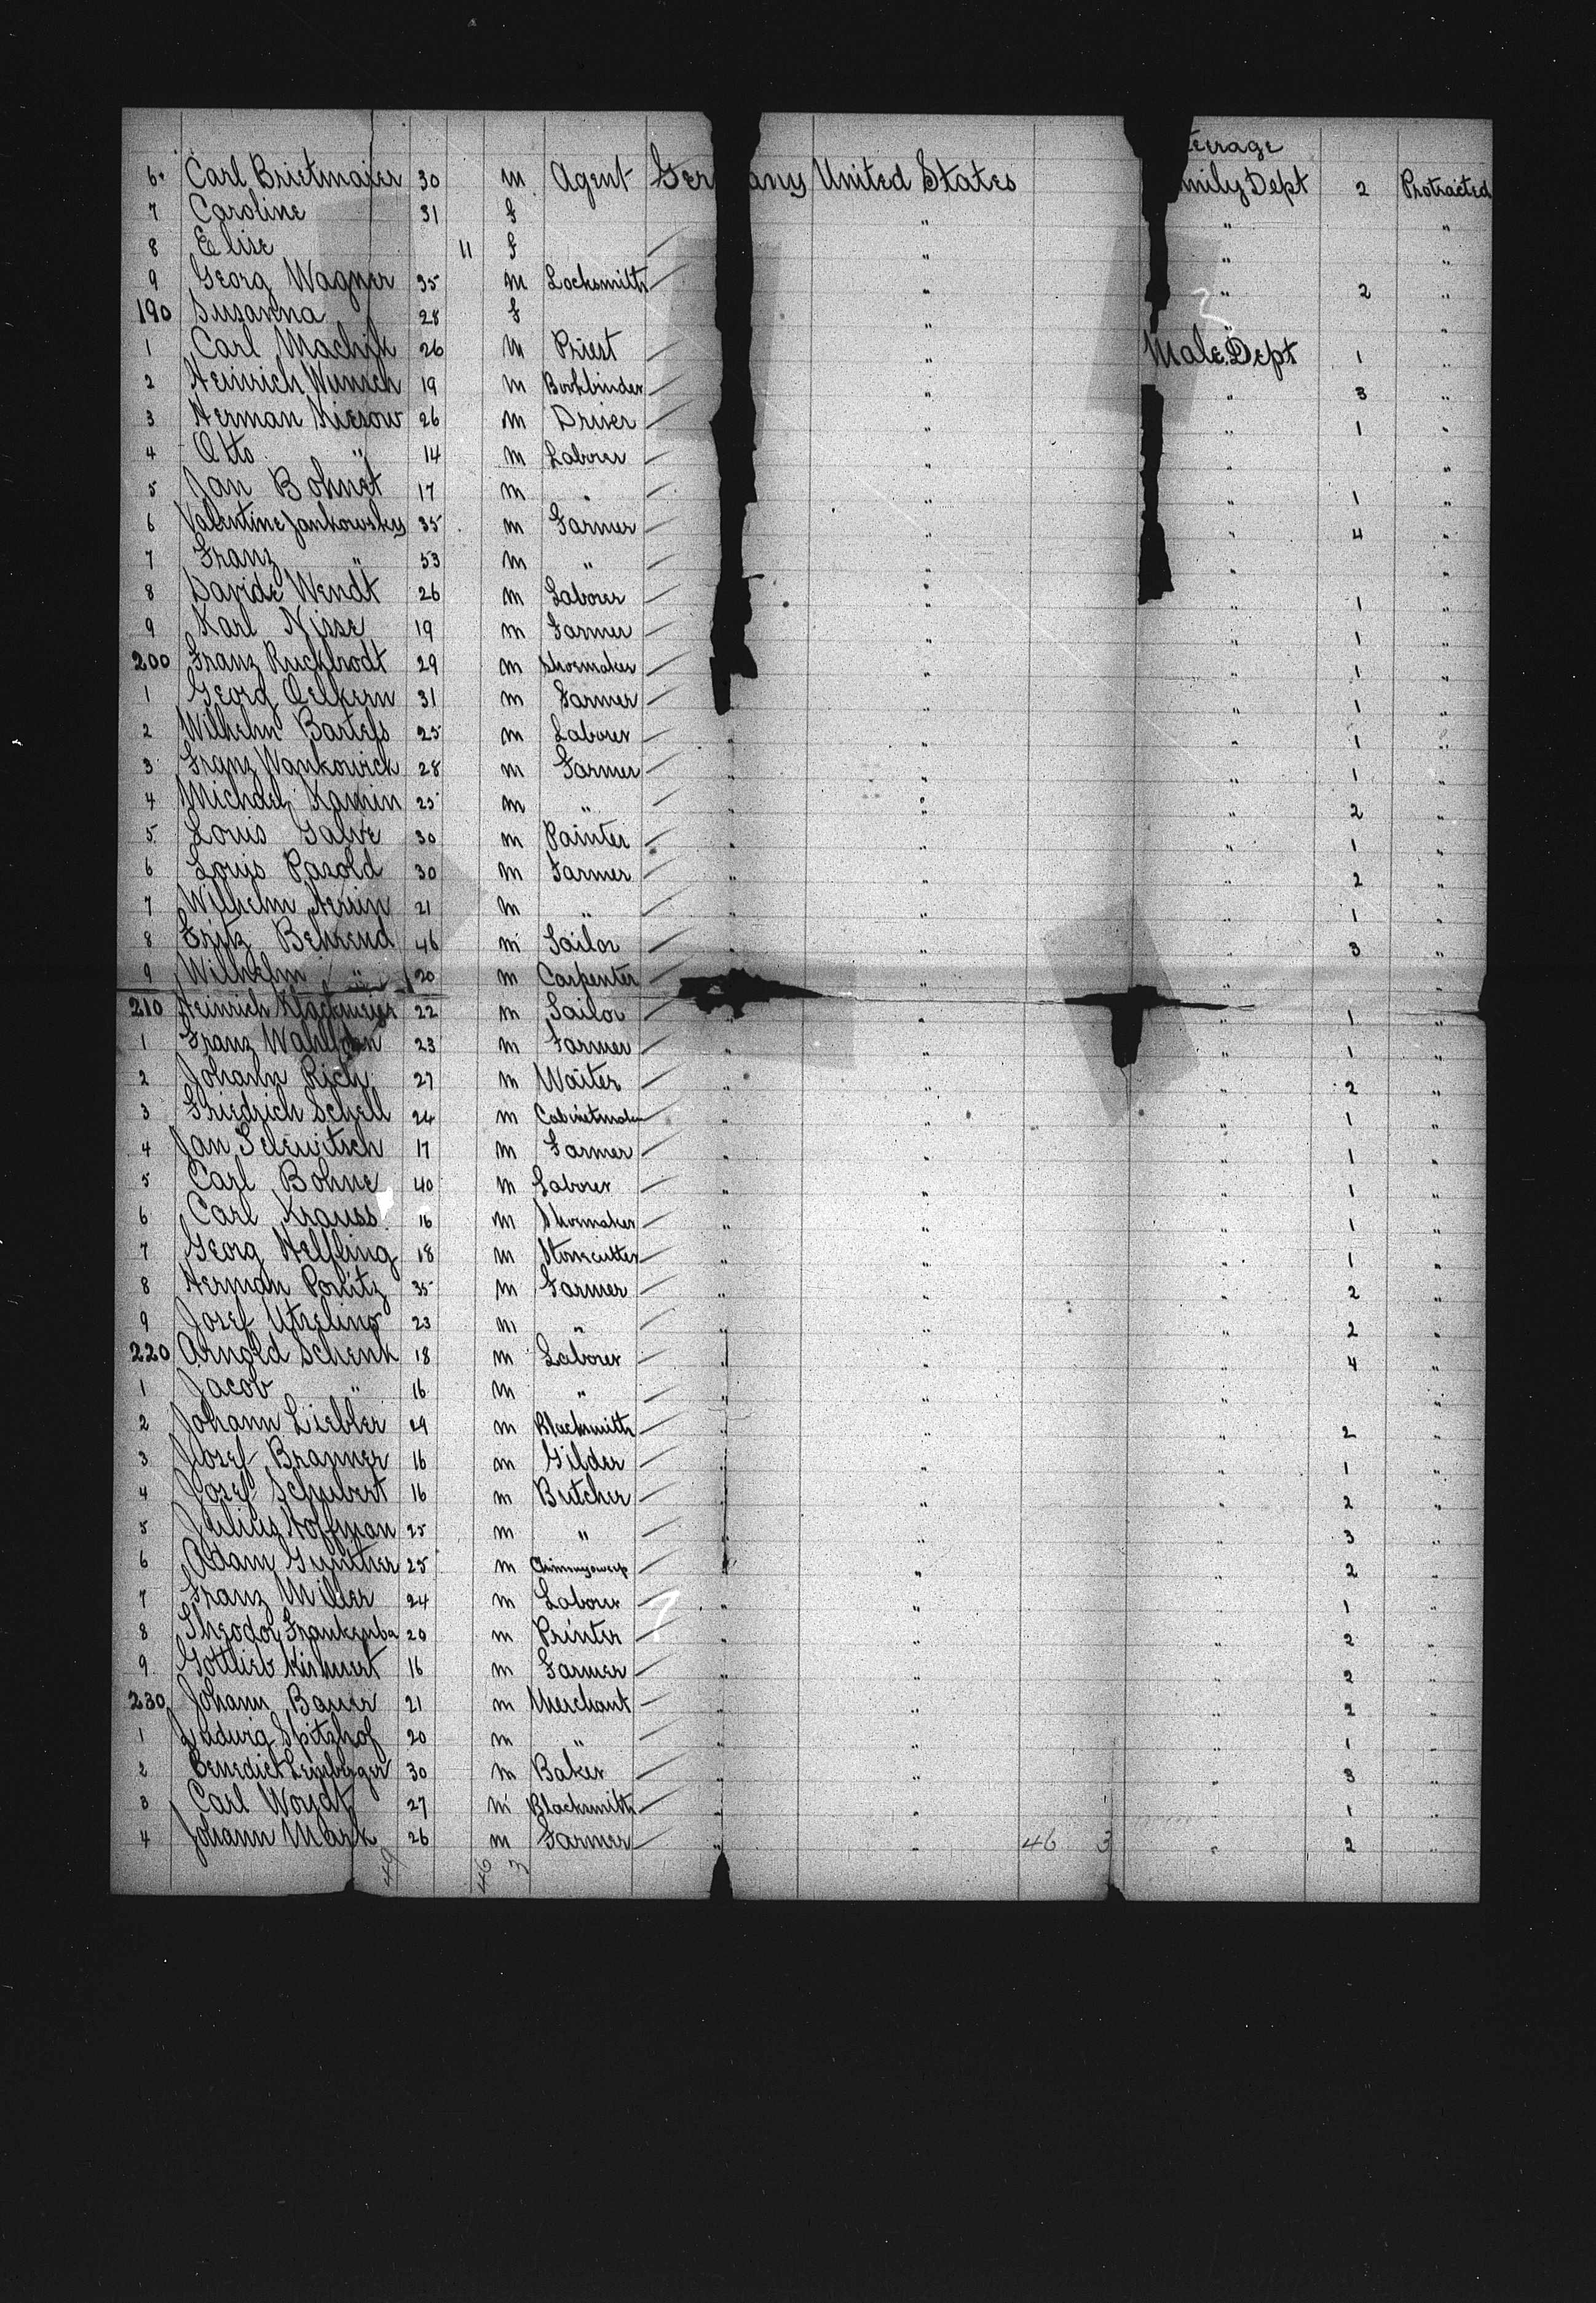 teerage
6. Carl Brietmaier 30 m Agent Ger any United States mily Dept 2 Protracted
7 Caroline 31 f " " "
8 Elise 11 f " " "
9 Georg Wagner 35 m Locksmith " " 2 "
190 Susanna 28 f " " "
1 Carl 26 m Priest " Male Dept 1 "
2 Heinrich Wunsch 19 m Bookbinder " " 3 "
3 Herman Kiesow 26 m Driver " " 1 "
4 Otto " 14 m Laborer " " "
5 Jan Bohnet 17 m " " " 1 "
6 Valentine Jankowsky 35 m Farmer " " 4 "
7 Franz " 53 m " " " "
8 Davide Wendt 26 m Laborer " " 1 "
9 Karl Nisse 19 m Farmer " " 1 "
200 Franz Ruckbrodt 29 m Shoemaker " " 1 "
1 Georg Oelkern 31 m Farmer " " 1 "
2 Wilhelm Bartels 25 m Laborer " " " 1 "
3 Franz Wankowich 28 m Farmer " " " 1 "
4 Michael Kamin 25 m " " " " 2 "
5 Louis Galve 30 m Painter " " " 1 "
6 Louis Pasold 30 m Farmer " " " 2 "
7 Wilhelm 21 m " " " " 1 "
8 Fritz Behrend 46 m Sailor " " " 3 "
9 Wilhelm " 20 m Carpenter " " "
210 Heinrich 22 m Sailor " " " 1 "
1 Franz 23 m Farmer " " " 1 "
2 Johann Rich 27 m Waiter " " " 2 "
3 Friedrich Schell 24 m Cabinetmaker " " " 1 "
4 Jan Selewitsch 17 m Farmer " " " 1 "
5 Carl Bohne 40 m Laborer " " " 1 "
6 Carl Krauss 16 m Shoemaker " " " 1 "
7 Georg Helfling 18 m Stonecutter " " " 1 "
8 Herman Ponitz 35 m Farmer " " " 2 "
9 Josef 23 m " " " " 2 "
220 Arnold Schenk 18 m Laborer " " " 4 "
1 Jacob " 16 m " " " " "
2 Johann Liebler 29 m Blacksmith " " " 2 "
3 Josef Branner 16 m Gilder " " " 1 "
4 Josef Schubert 16 m Butcher " " " 2 "
5 Julius Hoffman 25 m " " " " 3 "
6 Adam Gunther 25 m Chimneysweep " " 2 "
7 Franz Miller 24 m Laborer " " " 1 "
8 Theodor Frankenba 20 m Printer " " " 2 "
9 Gottlieb 16 m Farmer " " " 2 "
230 Johann Bauer 21 m Merchant " " " 2 "
1 Ludwig Spitzhof 20 m " " " " 1 "
2 Benedict Lemberger 30 m Baker " " " 3 "
3 Carl Woydt 27 m Blacksmith " " " 1 "
4 Johann Mark 26 m Farmer " " 46 3 " 2 "
49 46 3